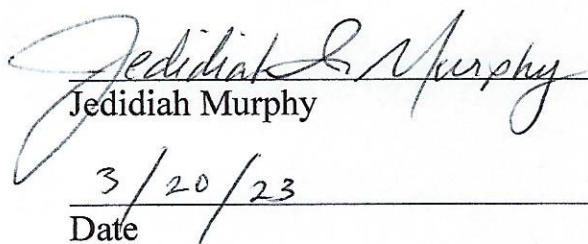 Jedidiah I. Murphy
Jedidiah Murphy
3/20/23
Date